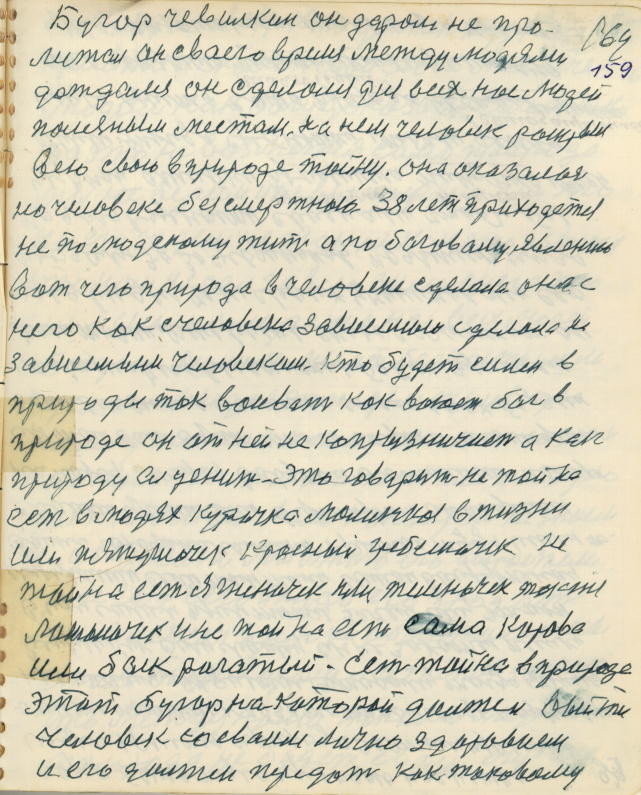 Бугор чевилкин он даром не про-
лижал он сваего время между людями
159
дождался он сделался для всех нас людей
полезным местам. на нем человек раскрыл
всю свою в природе тайну. она оказалая
но человеке бесмертная 38 лет приходется
не по людскому жить а по боговому явлению
вот чего природа в человеке сделала она с
него как счеловека зависемым сделала не
зависемым человеком. кто будет силен в
природы так воеват как воюет бог в
природе он от ней не капризничает а как
природу и ценит - Это говарит не тайна
ест в людях курочка молинкая в жизни
или петушочек красный гребешочек не
тайна ест ягненочек или теленочек также
лошоночек и не тайна ест сама корова
или бык рагатый - Сет тайна в природе
этат бугор на которай должен выйти
человек со сваим лично здоровием
и его должен передат как таковому